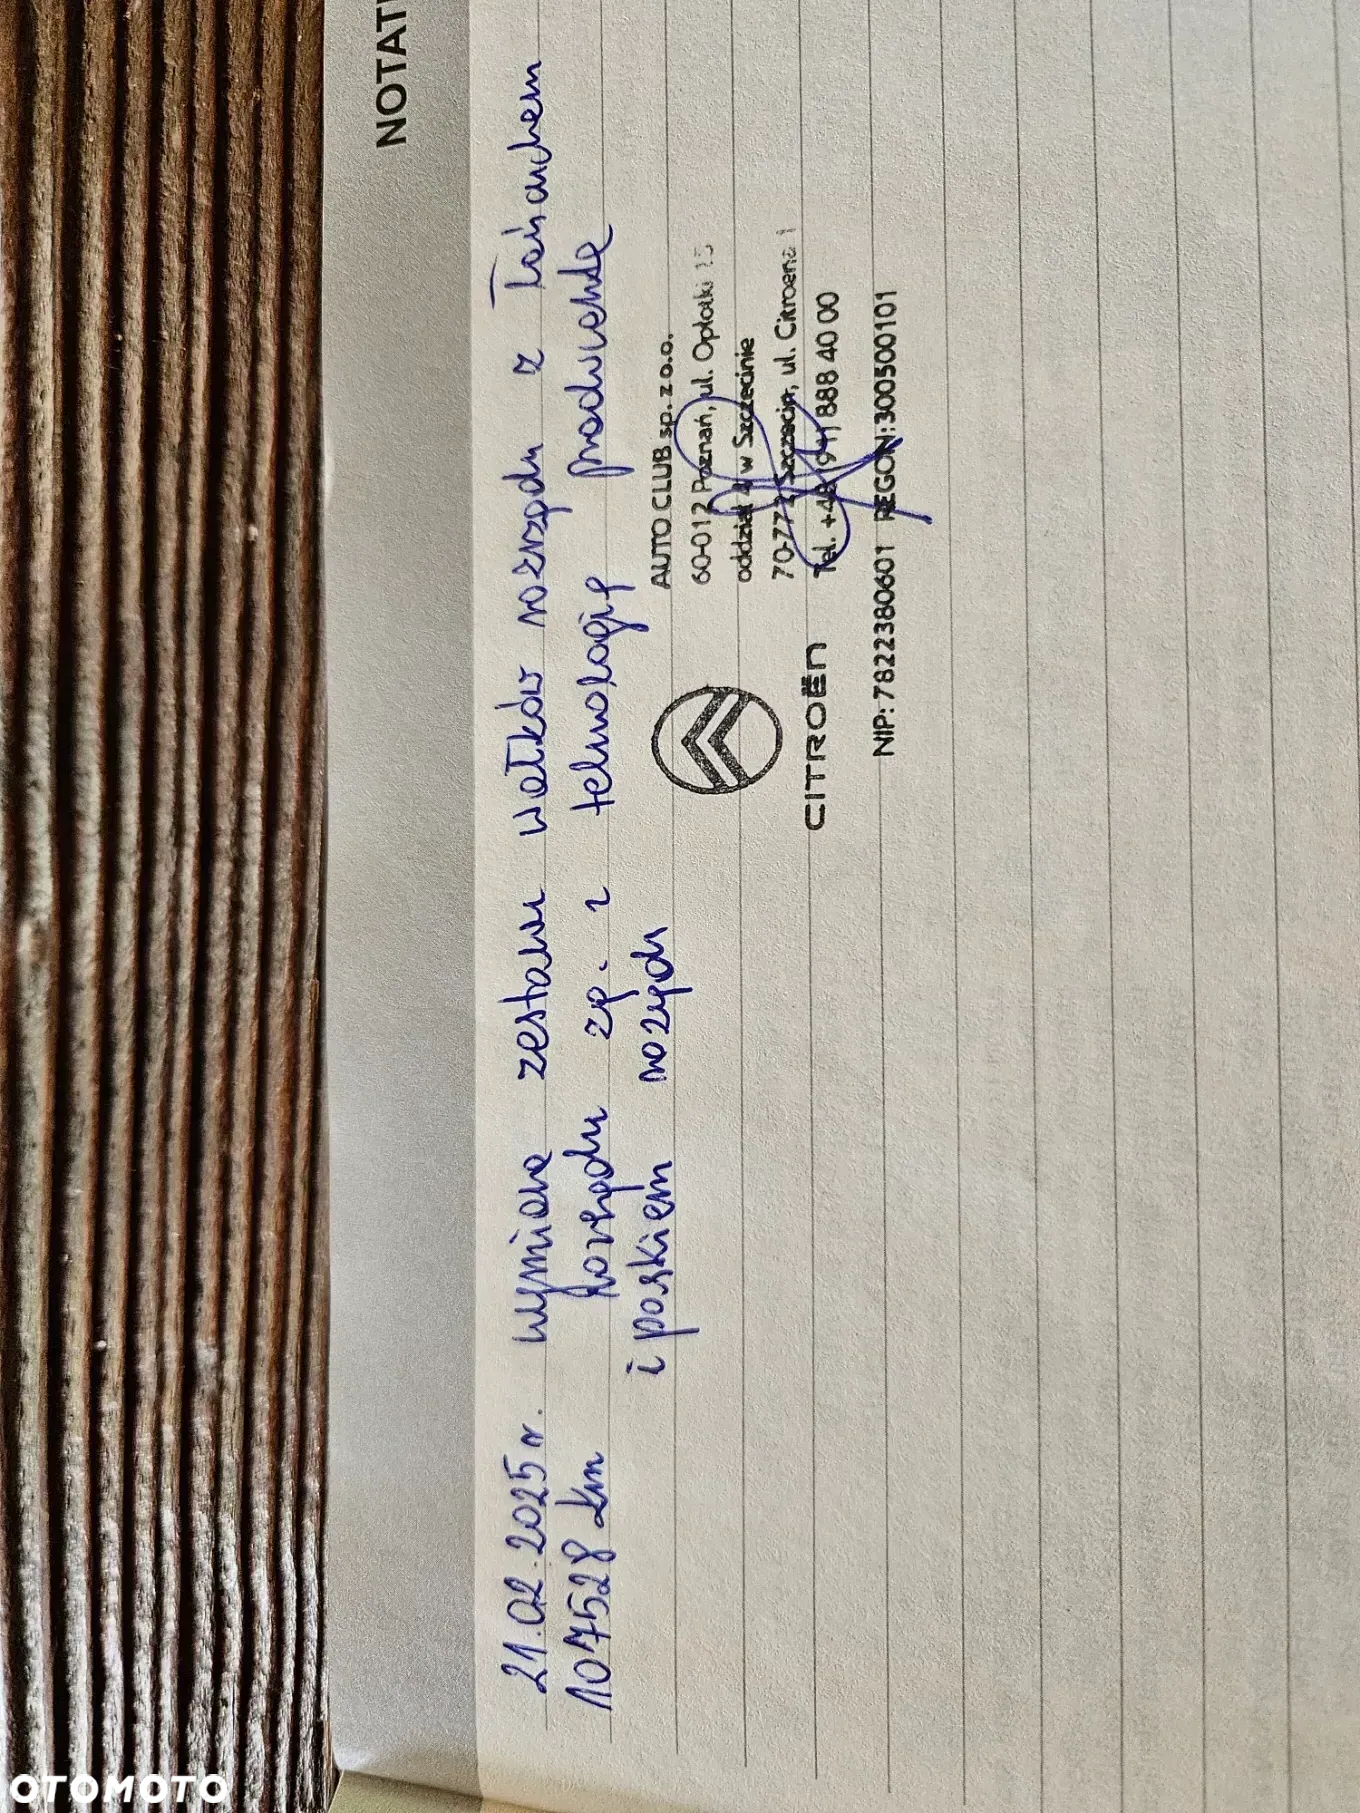 NOTAT
21.02.2025r. wymiana zestawu wałków rozrządu z łańcuchem
107528 km rozrządu zg. z technologią producenta
i paskiem rozrządu
AUTO CLUB sp. z o.o.
60-012 Poznań, ul. Opłotki 15
oddział w Szczecinie
70-77 Szczecin, ul. Citroena 1
CITROËN Tel. +48 (91) 888 40 00
NIP: 7822380601 REGON: 300500101
OTOMOTO